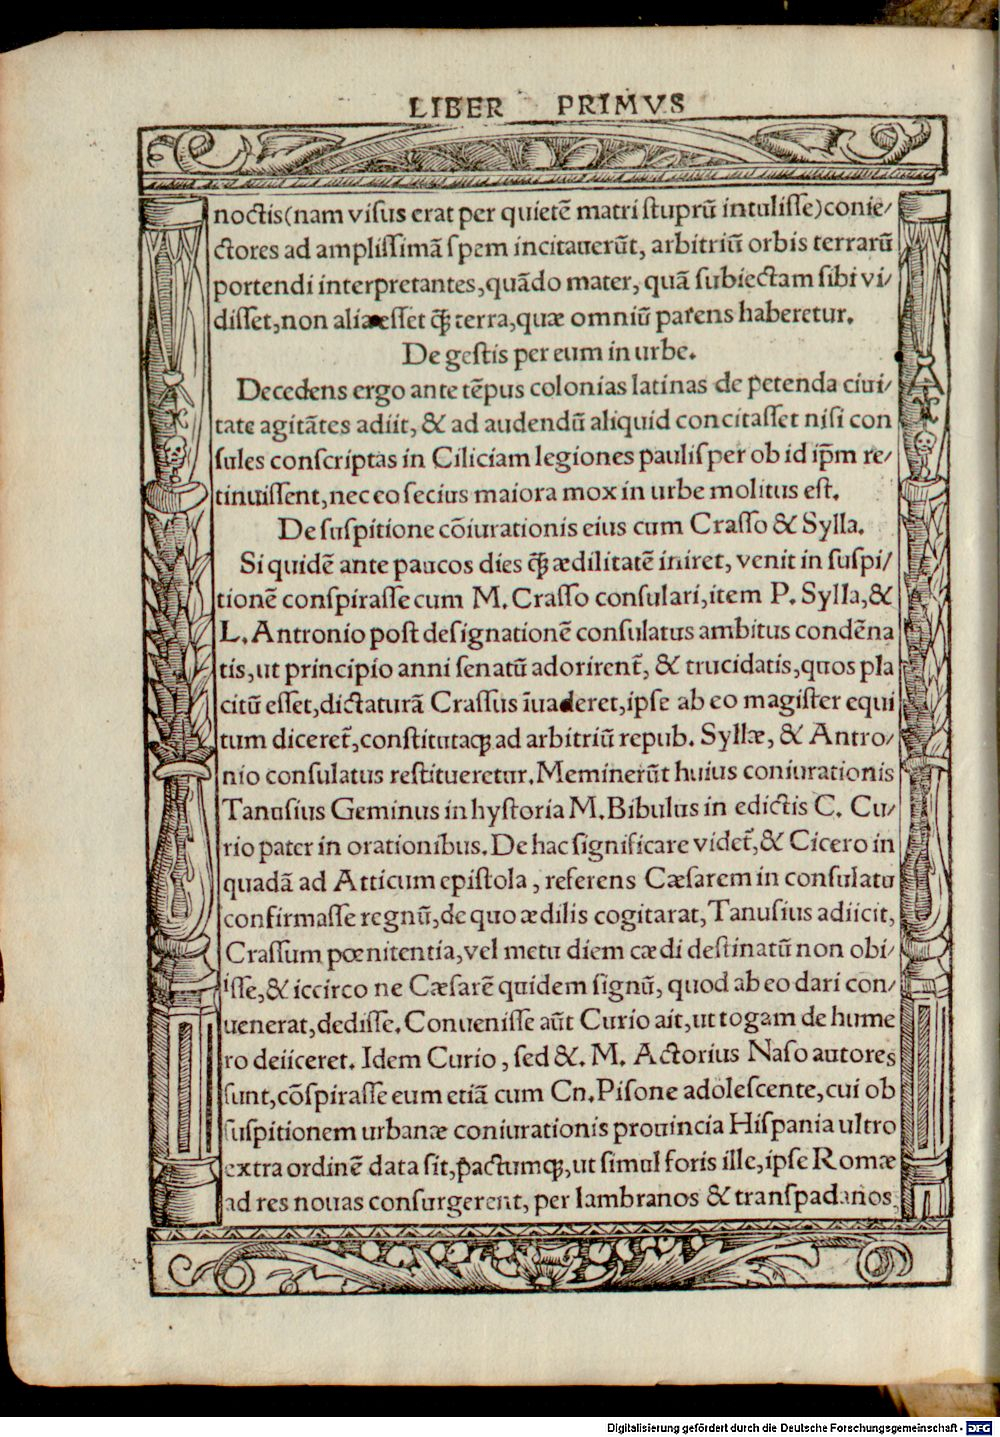 LIBER PRIMVS
noctis(nam visus erat per quietē matri stuprū intulisse)conie/
ctores ad amplissimā spem incitauerūt, arbitriū orbis terrarū
portendi interpretantes,quādo mater, quā subiectam sibi vi/
disset,non alia esset q̄ꝫ terra,quæ omniū parens haberetur.
De gestis per eum in urbe.
Decedens ergo ante tēpus colonias latinas de petenda ciui/
tate agitātes adiit, & ad audendū aliquid concitasset nisi con
sules conscriptas in Ciliciam legiones paulisper ob id ip̄m re/
tinuissent,nec eo secius maiora mox in urbe molitus est.
De suspitione cōiurationis eius cum Crasso & Sylla.
Si quidē ante paucos dies q̄ꝫ ædilitatē iniret, venit in suspi/
tionē conspirasse cum M. Crasso consulari,item P. Sylla,&
L. Antronio post designationē consulatus ambitus condēna
tis,ut principio anni senatū adorirent̄, & trucidatis,quos pla
citū esset,dictaturā Crassus īuaderet,ipse ab eo magister equi
tum diceret̄,constitutaqꝫ ad arbitriū repub. Syllæ, & Antro/
nio consulatus restitueretur.Meminerūt huius coniurationis
Tanusius Geminus in hystoria M. Bibulus in edictis C. Cu/
rio pater in orationibus.De hac significare videt̄,& Cicero in
quadā ad Atticum epistola, referens Cæsarem in consulatu
confirmasse regnū,de quo ædilis cogitarat,Tanusius adiicit,
Crassum pœnitentia,vel metu diem cædi destinatū non obi/
isse,& iccirco ne Cæsarē quidem signū, quod ab eo dari con/
uenerat,dedisse.Conuenisse aūt Curio ait,ut togam de hume
ro deiiceret. Idem Curio, sed &. M. Actorius Naso autores
sunt,cōspirasse eum etiā cum Cn.Pisone adolescente,cui ob
suspitionem urbanæ coniurationis prouincia Hispania ultro
extra ordinē data sit,p̄actumqꝫ,ut simul foris ille,ipse Romæ
ad res nouas consurgerent, per lambranos & transpadanos,
Digitalisierung gefördert durch die Deutsche Forschungsgemeinschaft - DFG